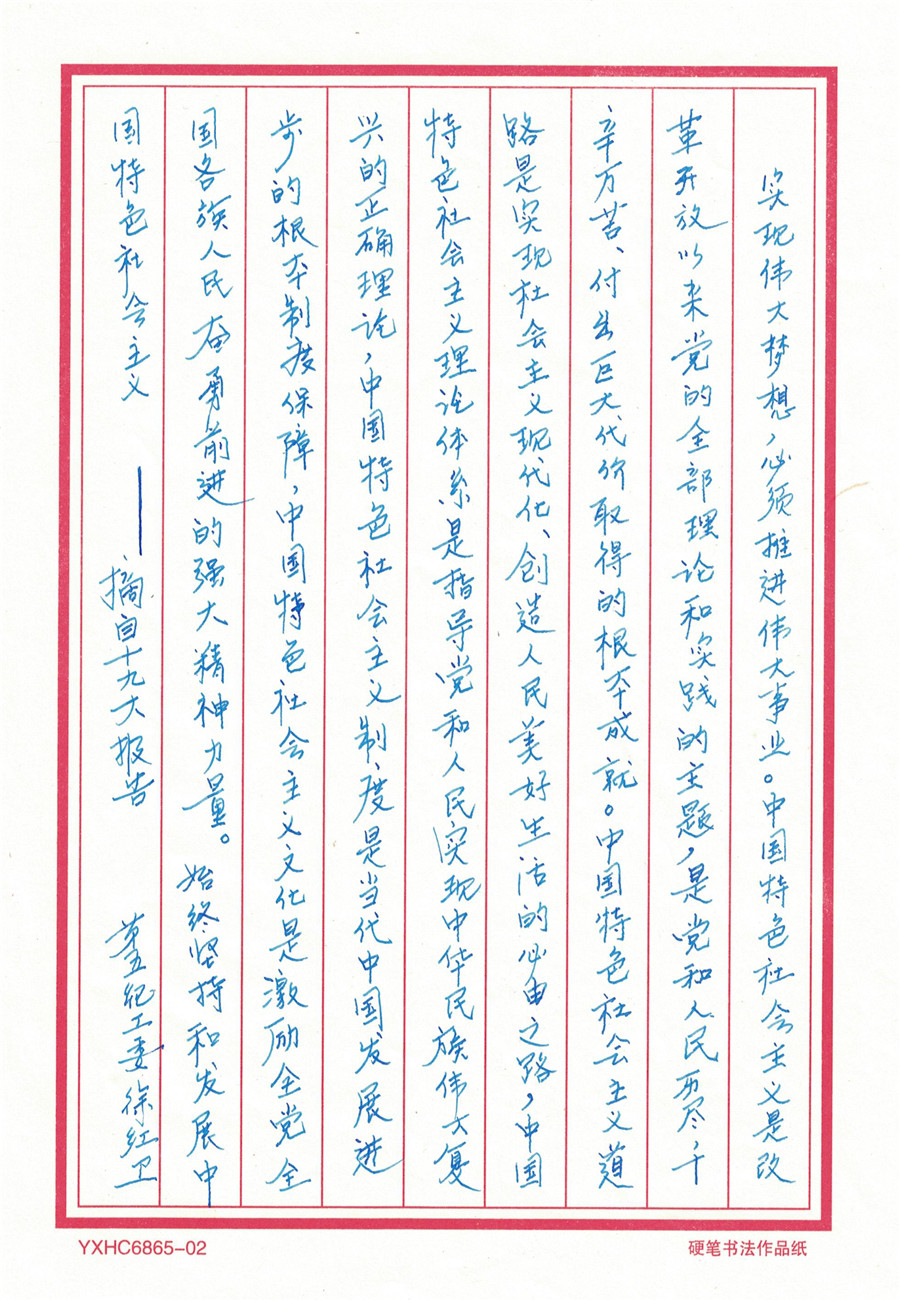 实现伟大梦想，必须推进伟大事业。中国特色社会主义是改
革开放以来党的全部理论和实践的主题，是党和人民历尽，千
辛万苦、付出巨大代价取得的根本成就。中国特色社会主义道
路是实现社会主义现代化、创造人民美好生活的必由之路，中国
特色社会主义理论体系是指导党和人民实现中华民族伟大复
兴的正确理论，中国特色社会主义制度是当代中国发展进
步的根本制度保障，中国特色社会主义文化是激励全党全
国各族人民奋勇前进的强大精神力量。始终坚持和发展中
国特色社会主义 ——摘自十九大报告 纪工委徐红卫
YXHC6865-02
硬笔书法作品纸